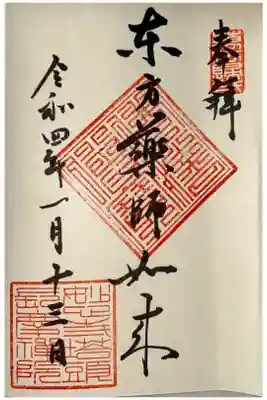 奉拝
东方藥師如来
令和四年一月十三日